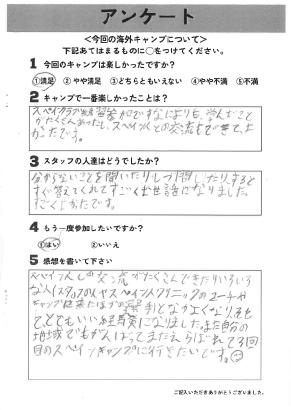 アンケート
＜今回の海外キャンプについて＞
下記あてはまるものに○をつけてください。
1 今回のキャンプは楽しかったですか？
①満足 ②やや満足 ③どちらともいえない ④やや不満 ⑤不満
2 キャンプで一番楽しかったことは？
スペインクラブ 参加ですなによりも、学んだこと
がたくさんあったし、スペイン人との交流もできてよ
かったです。
3 スタッフの人達はどうでしたか？
分からないことを聞いたりしつ問したりするとすると
すぐ答えてくれてすごくお世話になりました。
すごくよかったです。
4 もう一度参加したいですか？
①はい ②いいえ
5 感想を書いて下さい
スペイン人との交流がたくさんできたりいろいろ
な人(スタッフの人やスペイン人クリニックのコーチや
キャンプに来たほかの選手)となかよくなりとても
とてもいい経験になりました。また自分の
地域でもがんばってまたえらばれて3回
目のスペインキャンプに行きたいです。
ご記入いただきありがとうございました。